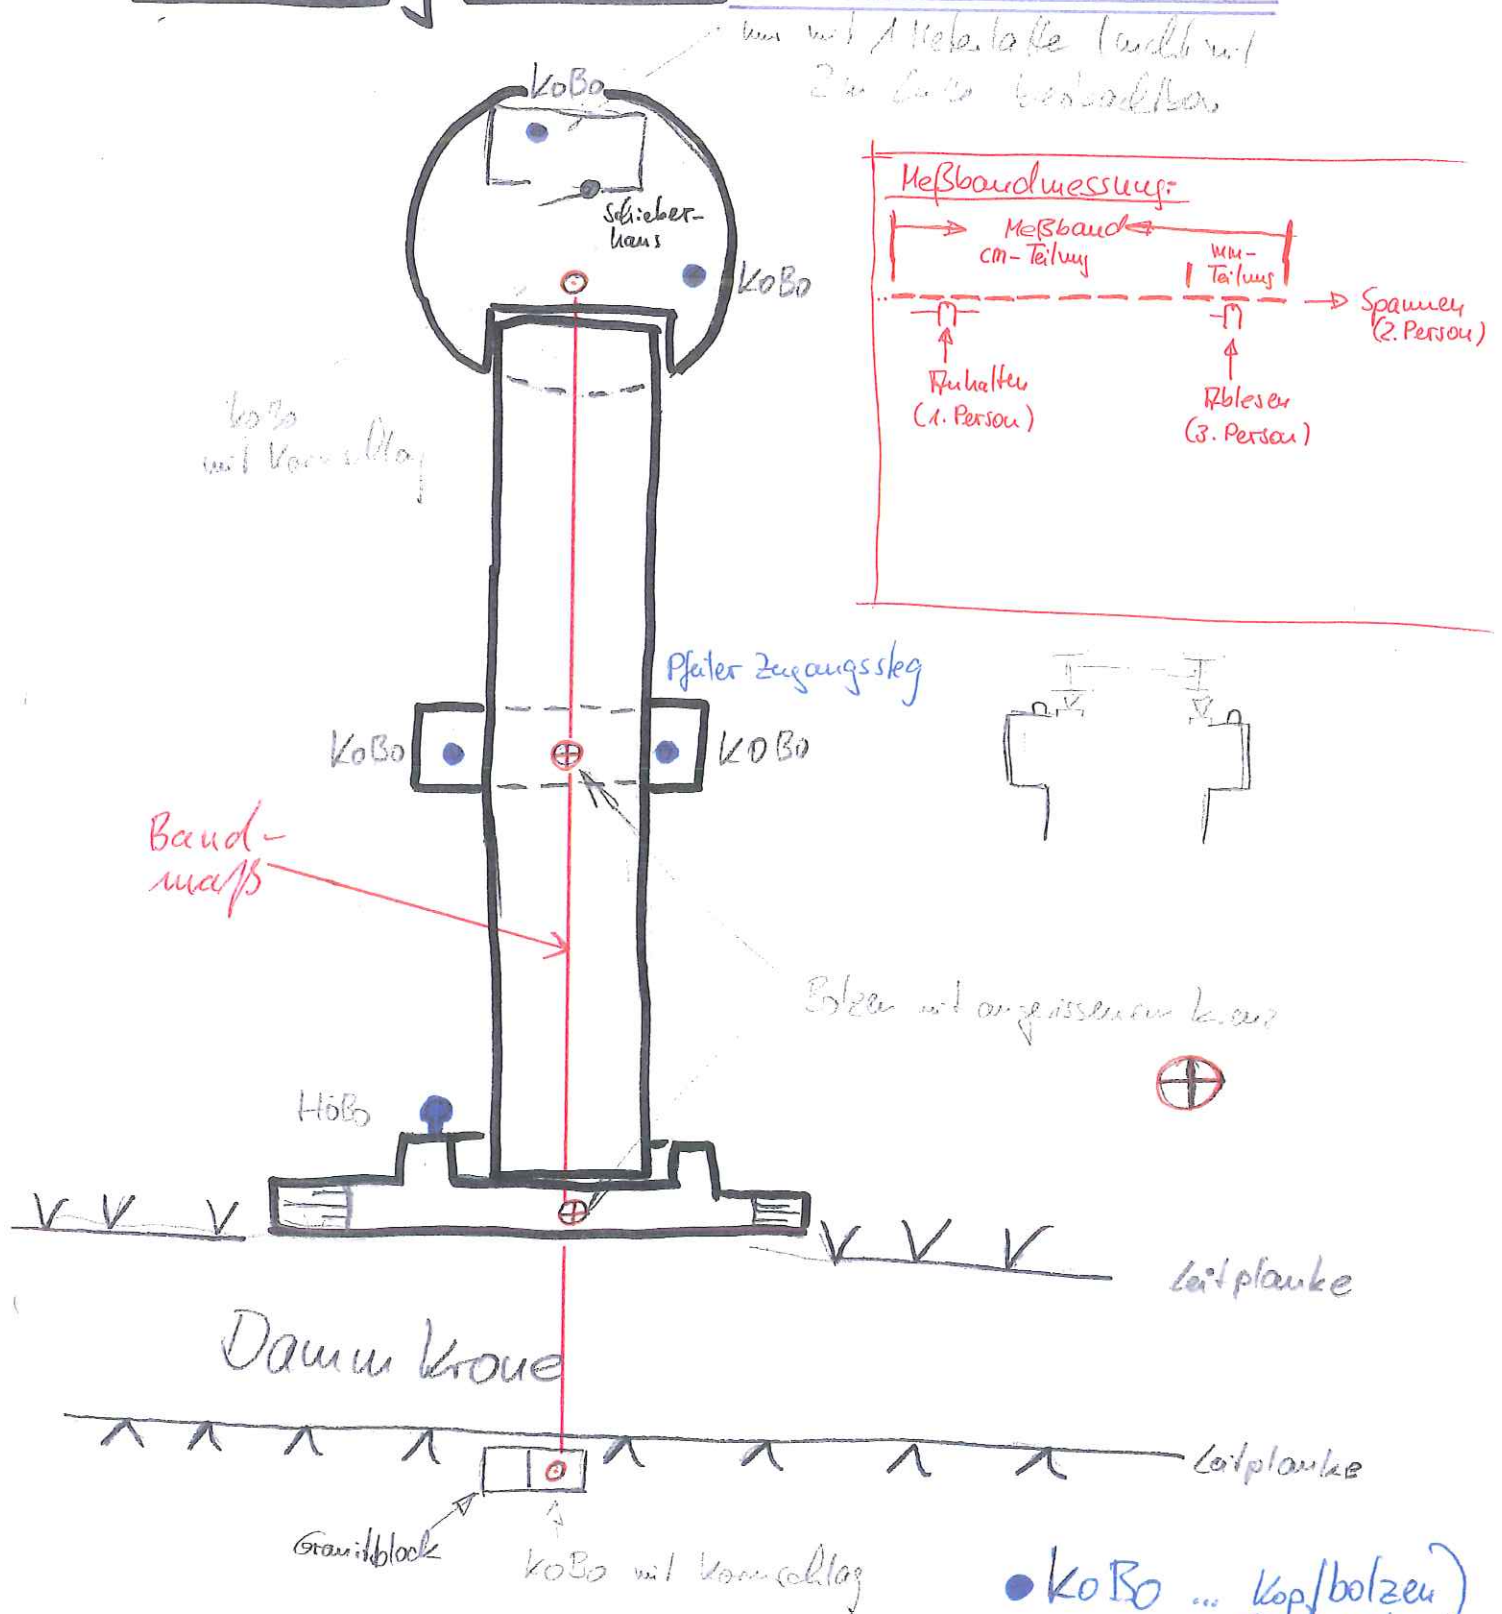 nur mit 1 Meterlatte (nicht mit
2m Latte
KoBo
Schieber-
haus
KoBo
Meßbandmessung:
Meßband
cm-Teilung
mm-
Teilung
Spannen
(2. Person)
Anhalten
(1. Person)
Ablesen
(3. Person)
KoBo
mit Kornschlag
Pfeiler Zugangssteg
KoBo
KoBo
Band-
maß
Bolzen mit angerissenem Kreuz
HöBo
Leitplanke
Damm Krone
Leitplanke
Granitblock
KoBo mit Kornschlag
KoBo ... Kopfbolzen)